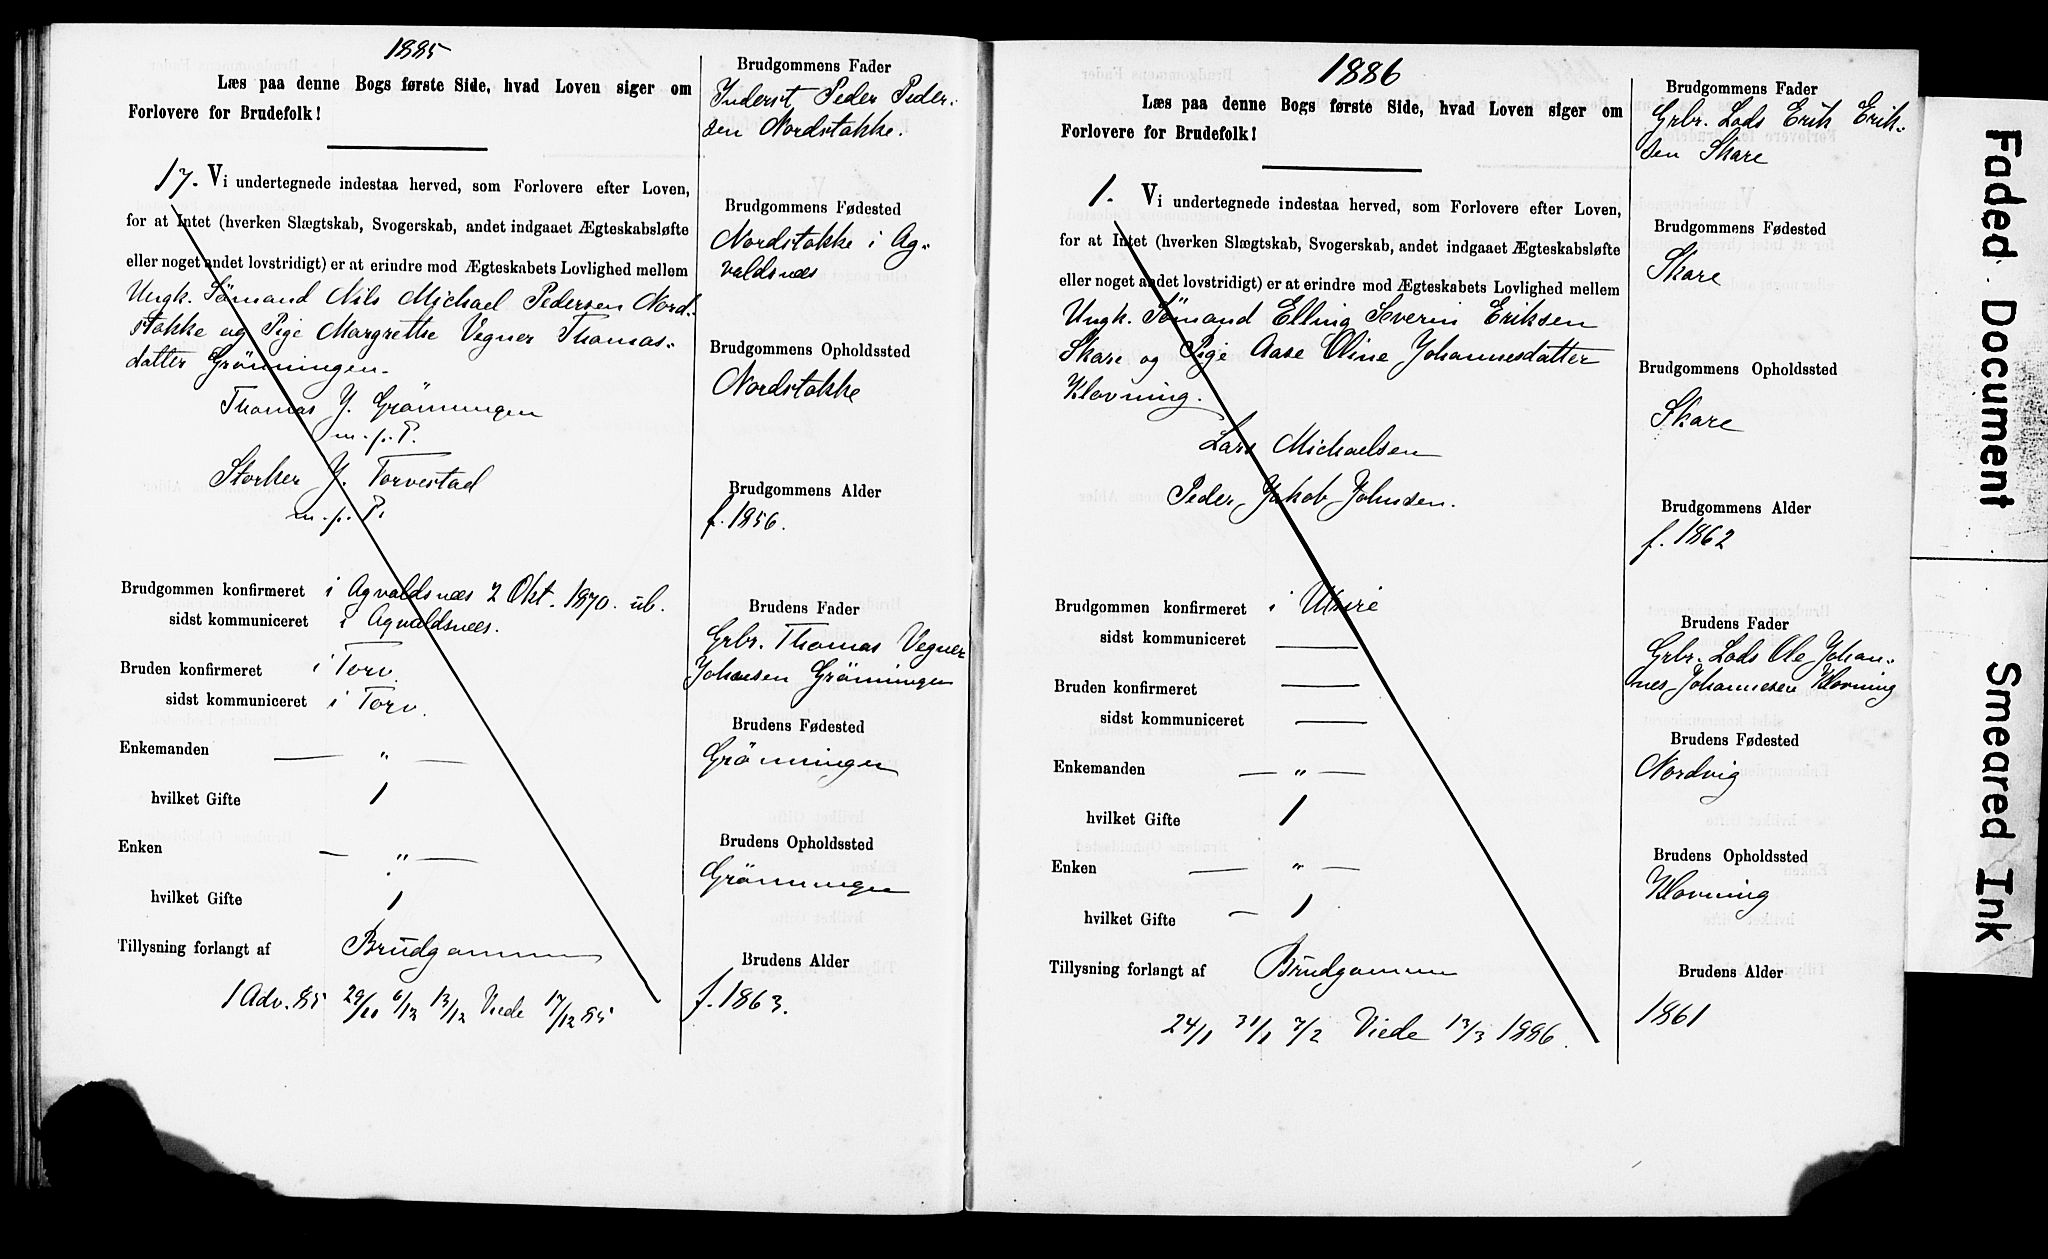 1885
Læs paa denne Bogs første Side, hvad Loven siger om
Forlovere for Brudefolk!
17. Vi undertegnede indestaa herved, som Forlovere efter Loven,
for at Intet (hverken Slægtskab, Svogerskab, andet indgaaet Ægteskabsløfte
eller noget andet lovstridigt) er at erindre mod Ægteskabets Lovlighed mellem
Ungk. Sömand Nils Michael Pedersen Nord-
stokke og Pige Margrethe Vegner Thomas-
datter Grönningen.
Thomas J. Grönningen
m. p. P.
Storker J. Torvestad
m. p. P.
Brudgommen konfirmeret i Agvaldsnæs 2 Okt. 1870. ub.
sidst kommuniceret i Agvaldsnæs.
Bruden konfirmeret i Torv.
sidst kommuniceret i Torv.
Enkemanden — „ —
hvilket Gifte 1
Enken — „ —
hvilket Gifte 1
Tillysning forlangt af Brudgommen
1 Adv. 85 29/11 6/12 13/12 Viede 17/12 85
Brudgommens Fader
Inderst Peder Peder-
sen Nordstokke.
Brudgommens Fødested
Nordstokke i Ag-
valdsnæs
Brudgommens Opholdssted
Nordstokke
Brudgommens Alder
f. 1856.
Brudens Fader
Grbr. Thomas Vegner
Johnsen Grönningen
Brudens Fødested
Grönningen
Brudens Opholdssted
Grönningen
Brudens Alder
f. 1863.
1886
Læs paa denne Bogs første Side, hvad Loven siger om
Forlovere for Brudefolk!
1. Vi undertegnede indestaa herved, som Forlovere efter Loven,
for at Intet (hverken Slægtskab, Svogerskab, andet indgaaet Ægteskabsløfte
eller noget andet lovstridigt) er at erindre mod Ægteskabets Lovlighed mellem
Ungk. Sömand Elling Severin Eriksen
Skare og Pige Aase Oline Johannesdatter
Klovning.
Lars Michaelsen
Peder Jakob Johnsen.
Brudgommen konfirmeret i Utsire
sidst kommuniceret —
Bruden konfirmeret —
sidst kommuniceret —
Enkemanden — „ —
hvilket Gifte 1
Enken — „ —
hvilket Gifte — 1
Tillysning forlangt af Brudgommen
24/1 31/1 7/2 Viede 13/3 1886.
Brudgommens Fader
Grbr. Lods Erik Erik-
sen Skare
Brudgommens Fødested
Skare
Brudgommens Opholdssted
Skare
Brudgommens Alder
f. 1862
Brudens Fader
Grbr. Lods Ole Johan-
nes Johannesen Klovning
Brudens Fødested
Nordvig
Brudens Opholdssted
Klovning
Brudens Alder
1861
Faded Document
Smeared Ink